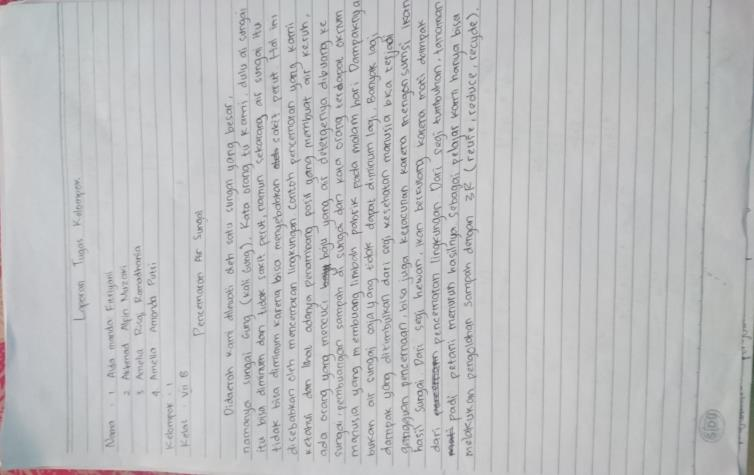 Laporan Tugas Kelompok
Nama : 1. Aida nanda Fitriyani
2. Akhmad Alfin Muzaki
3. Amelia Rizqi Ramadhania
4. Amelia Amanda Putri
Kelompok : 1
Kelas VII B
Pencemaran Air Sungai
Didaerah kami dilewati oleh satu sungai yang besar,
namanya sungai Gung (kali Gung). Kata orang tu kami, dulu di sungai
itu bisa diminum dan tidak sakit perut, namun sekarang air sungai itu
tidak bisa diminum karena bisa menyebabkan sakit perut Hal ini
disebabkan oleh mencemaran lingkungan contoh pencemaran yang kami
ketahui dan lihat adanya penambang pasir yang membuat air keruh,
ada orang yang mencuci baju yang air detergenya dibuang ke
sungai, pembuangan sampah di sungai dan kata orang terdapat oknum
manusia yang membuang limbah pabrik pada malam hari Dampaknya
bukan air sungai saja yang tidak dapat diminum lagi, Banyak lagi
dampak yang ditimbulkan dari segi kesehatan manusia bisa terjadi
gangguan pencernaan, bisa juga keracunan karena mengonsumsi ikan
hasil sungai Dari segi hewan, ikan berkurang karena mati dampak
dari pencemaran lingkungan Dari segi tumbuhan, tanaman
padi petani menurun hasilnya. Sebagai pelajar kami hanya bisa
melakukan pengolahan sampah dengan 3R (reuse, reduce, recycle).